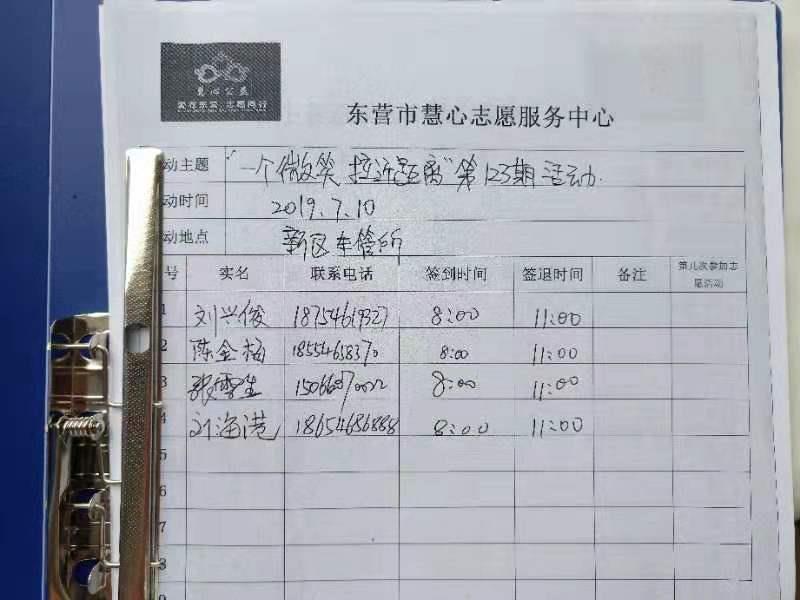 慧心公益
爱在东营 志愿同行
东营市慧心志愿服务中心
动主题 "一个微笑 拉近距离"第123期活动.
动时间 2019.7.10
动地点 新区车管所
号 实名 联系电话 签到时间 签退时间 备注 第几次参加志愿活动
1 刘兴俊 18754619327 8:00 11:00
2 陈金梅 18554658370 8:00 11:00
3 张雪生 8:00 11:00
4 刘海港 18654686888 8:00 11:00
5
6
7
8